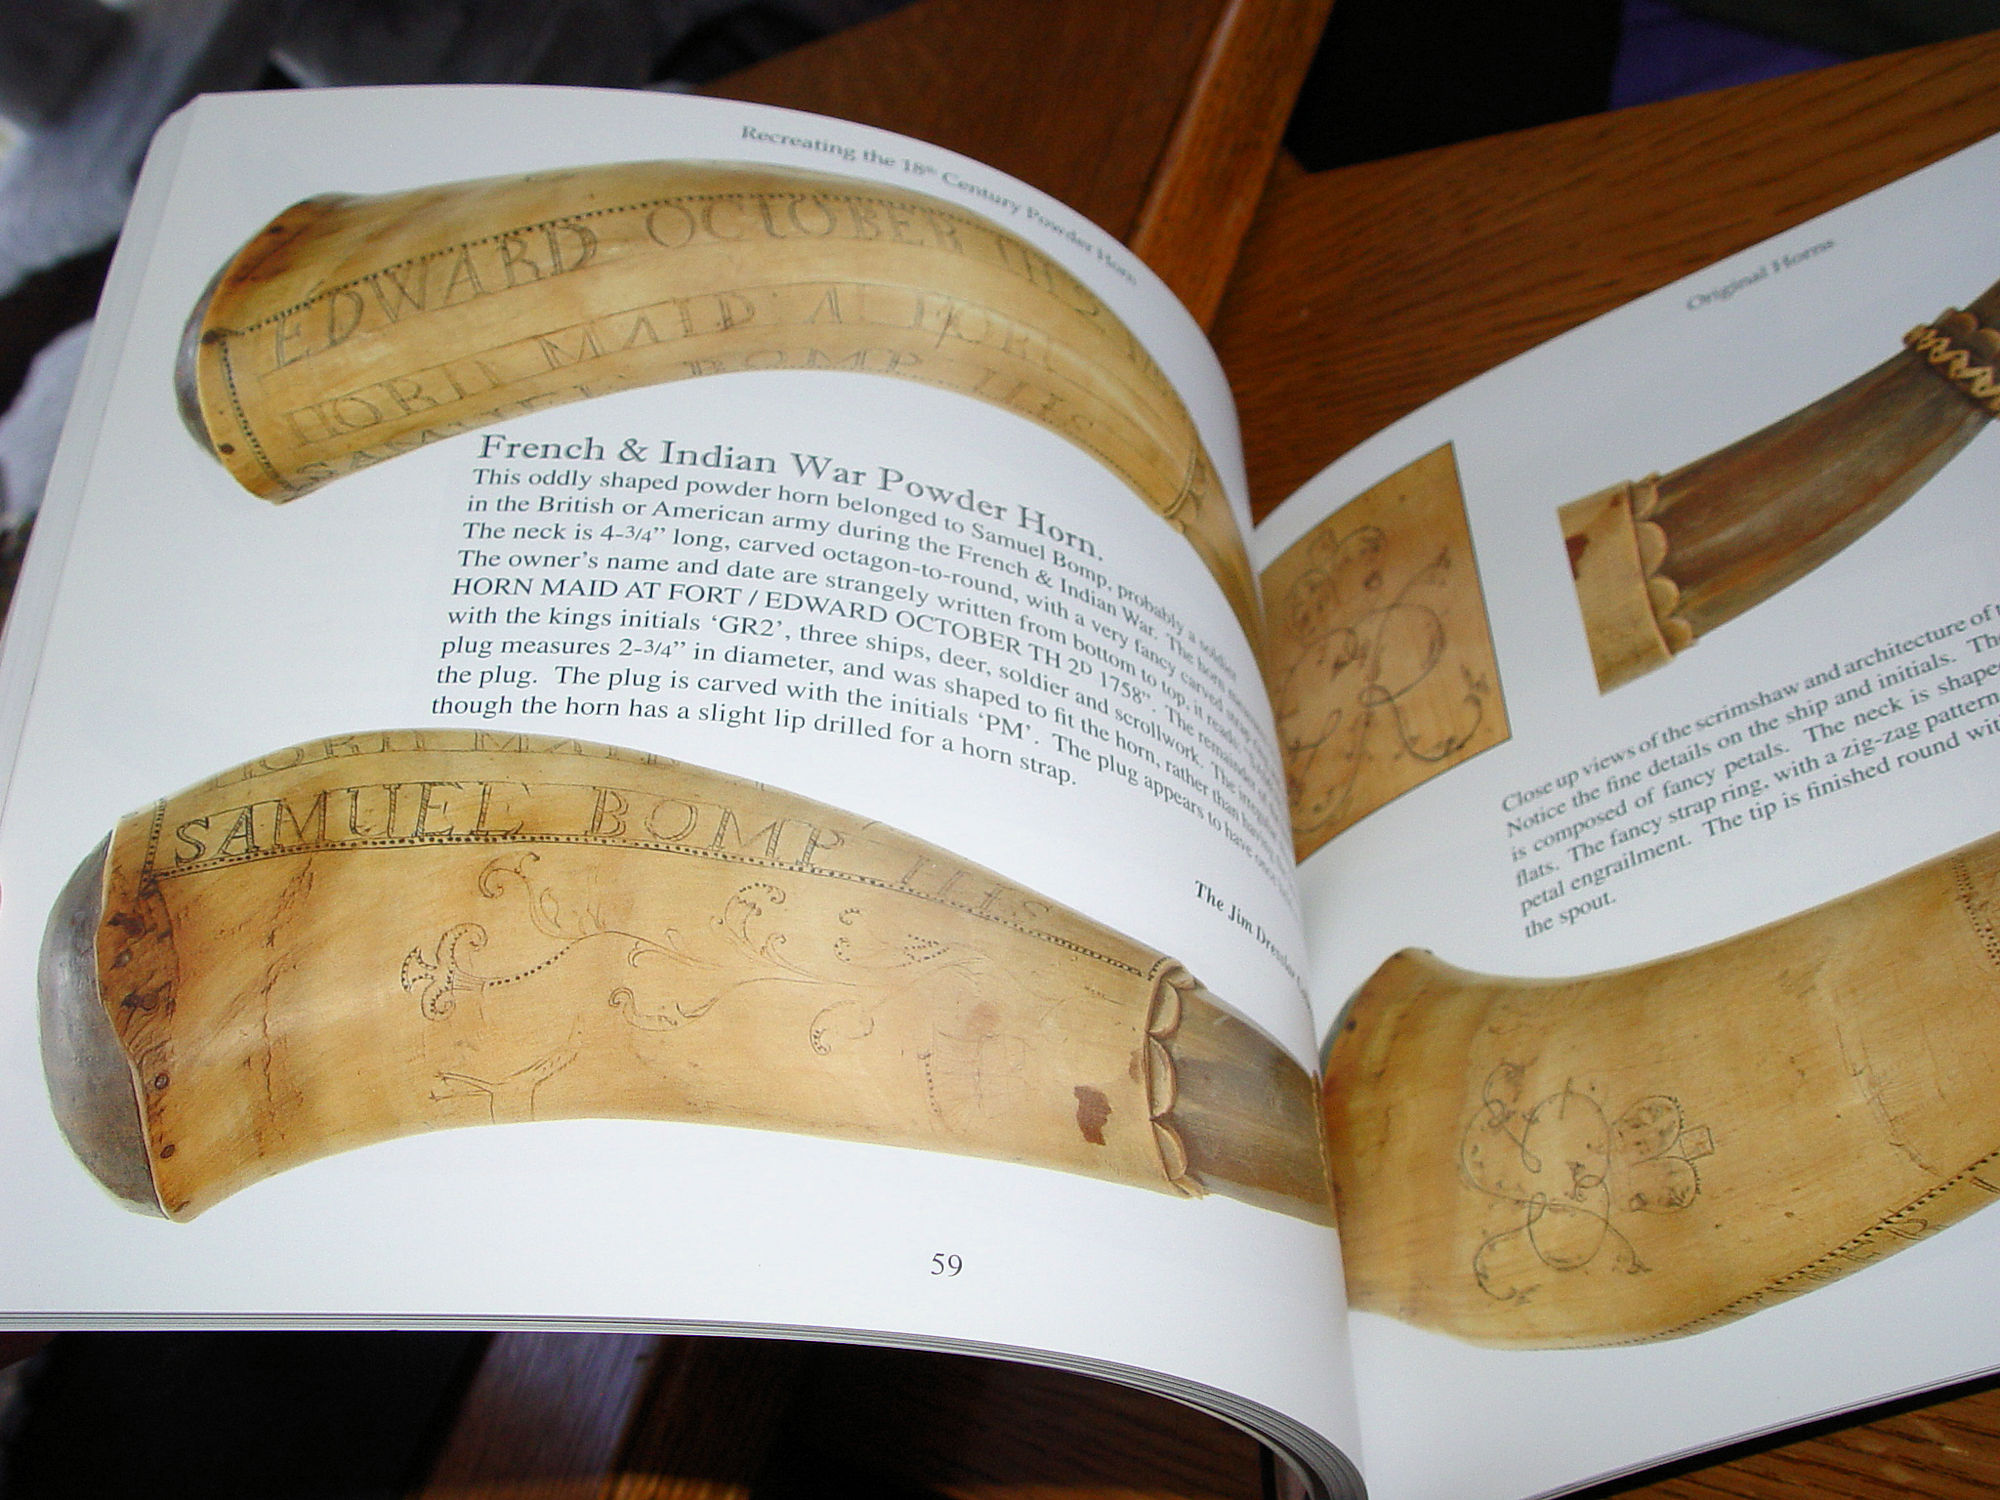 Recreating the 18th Century Powder Horn
EDWARD OCTOBER TH
HORN MAID AT FORT
SAMUEL BOMP HIS
French & Indian War Powder Horn.
This oddly shaped powder horn belonged to Samuel Bomp, probably a soldier
in the British or American army during the French & Indian War. The horn
The neck is 4-3/4” long, carved octagon-to-round, with a very fancy carved strap
The owner’s name and date are strangely written from bottom to top, it reads:
HORN MAID AT FORT / EDWARD OCTOBER TH 2D 1758”. The remainder
with the kings initials ‘GR2’, three ships, deer, soldier and scrollwork. The irregular
plug measures 2-3/4” in diameter, and was shaped to fit the horn, rather than having
the plug. The plug is carved with the initials ‘PM’. The plug appears to have once
though the horn has a slight lip drilled for a horn strap.
The Jim Dresslar
HORN MAID
SAMUEL BOMP HIS
59
Original Horns
Close up views of the scrimshaw and architecture of
Notice the fine details on the ship and initials.
is composed of fancy petals. The neck is
flats. The fancy strap ring, with a zig-zag pattern
petal engrailment. The tip is finished round
the spout.